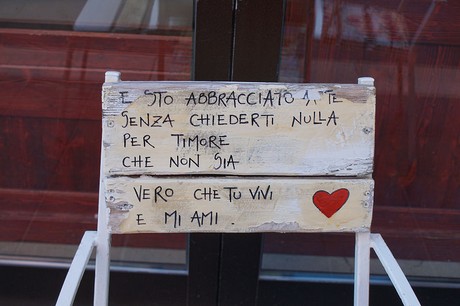 E STO ABBRACCIATO A TE
SENZA CHIEDERTI NULLA
PER TIMORE
CHE NON SIA
VERO CHE TU VIVI
E MI AMI.